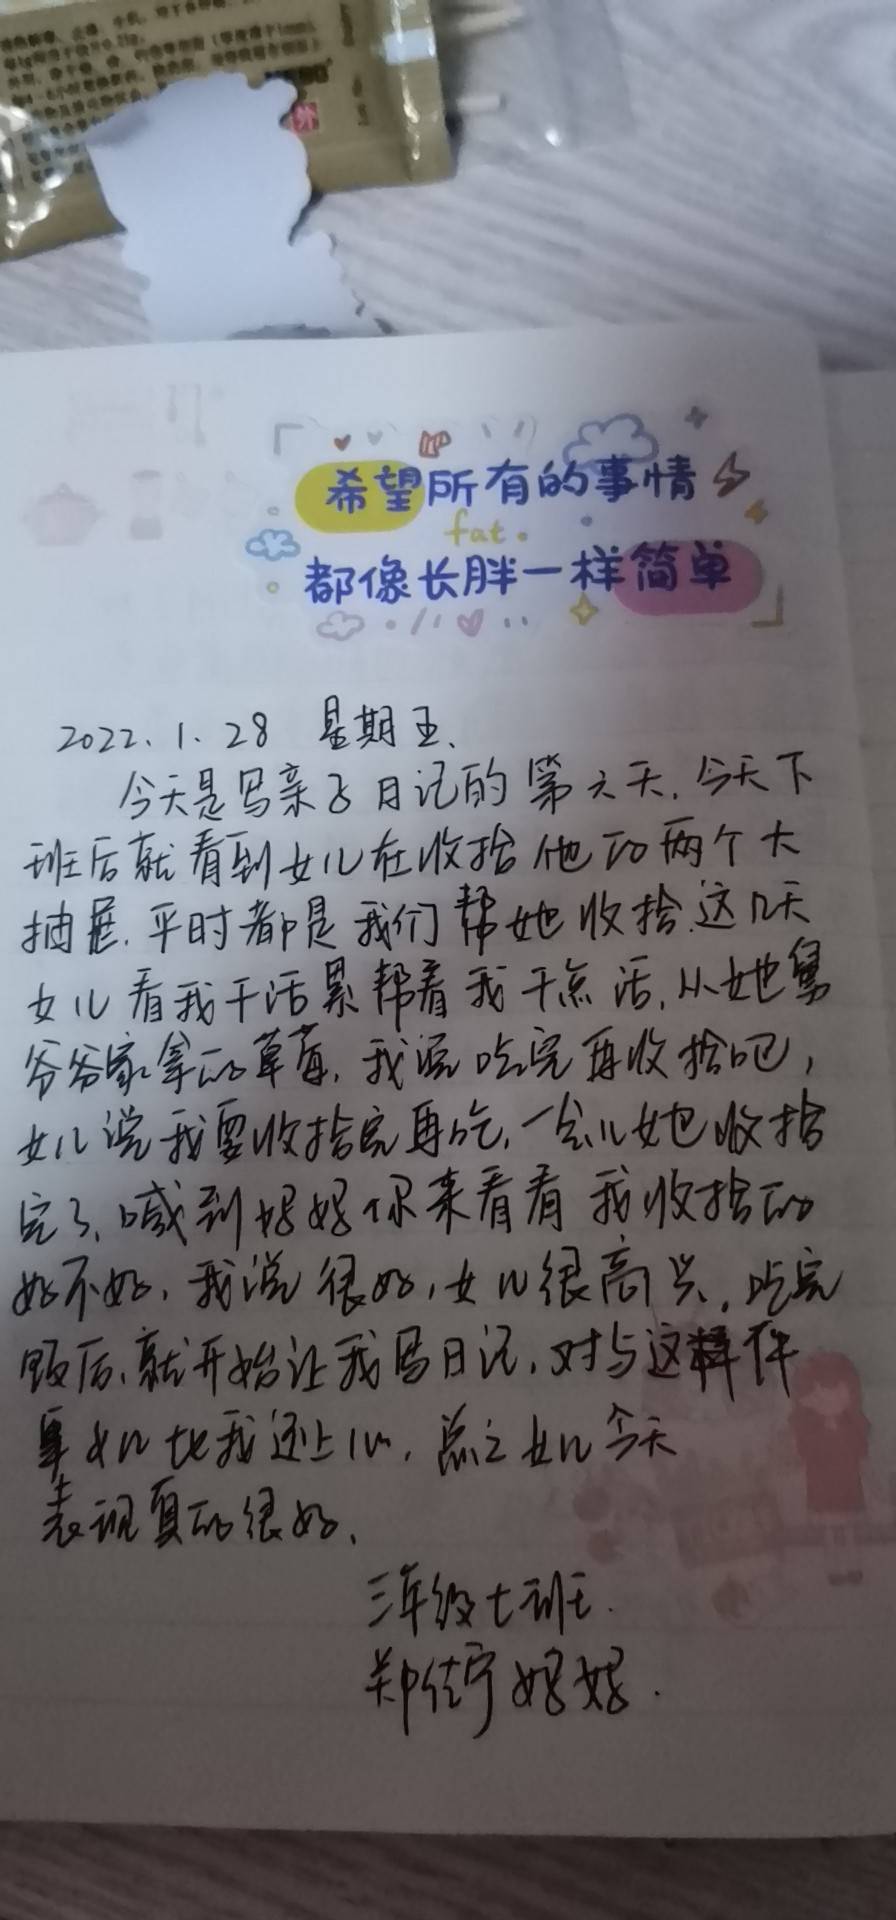 外
希望所有的事情
fat.
都像长胖一样简单
2022.1.28 星期五.
今天是写亲子日记的第六天.今天下
班后就看到女儿在收拾他的两个大
抽屉.平时都是我们帮她收拾.这几天
女儿看我干活累帮着我干点活,从她舅
爷爷家拿的草莓.我说吃完再收拾吧,
女儿说我要收拾完再吃.一会儿她收拾
完了,喊到妈妈你来看看我收拾的
好不好,我说很好,女儿很高兴.吃完
饭后,就开始让我写日记,对与这样件
事女儿比我还上心,总之女儿今天
表现真的很好.
三年级七班.
郑佳宁妈妈.